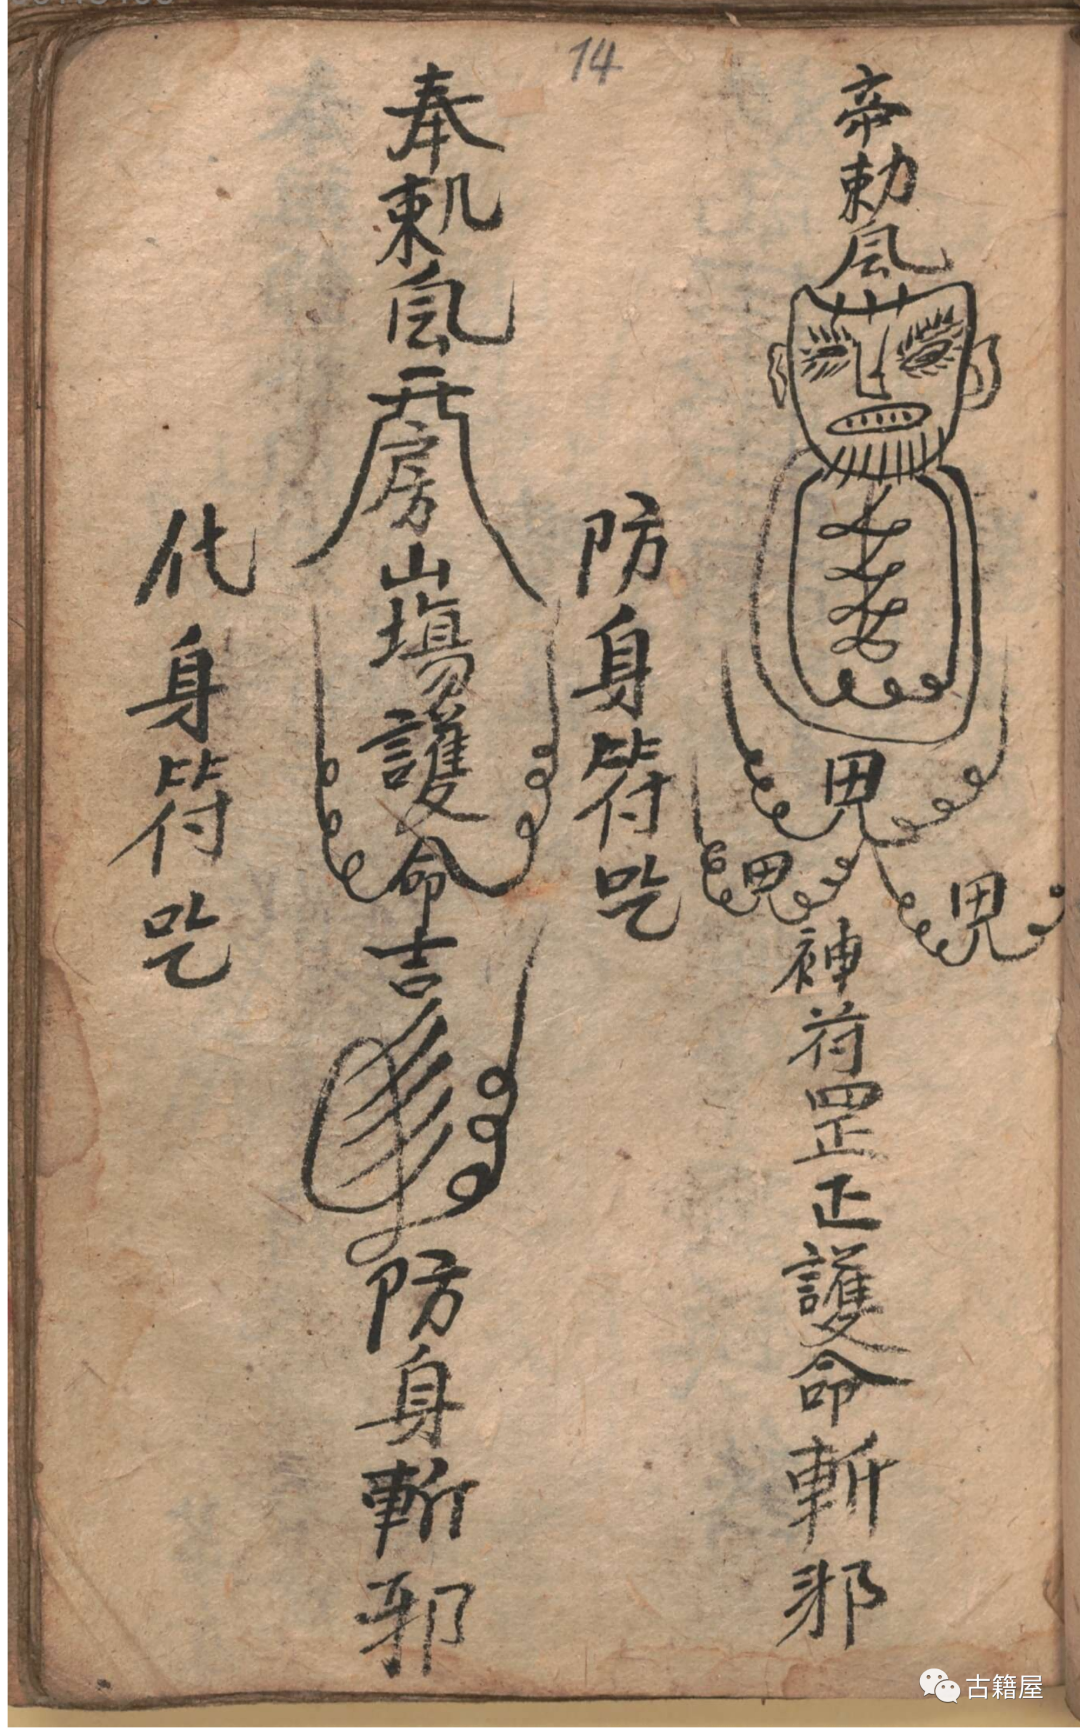 14
帝勅風
甩
甩
甩
神符罡正護命斬邪
防身符吃
奉勅風
房山場護命吉
防身斬邪
代身符吃
古籍屋